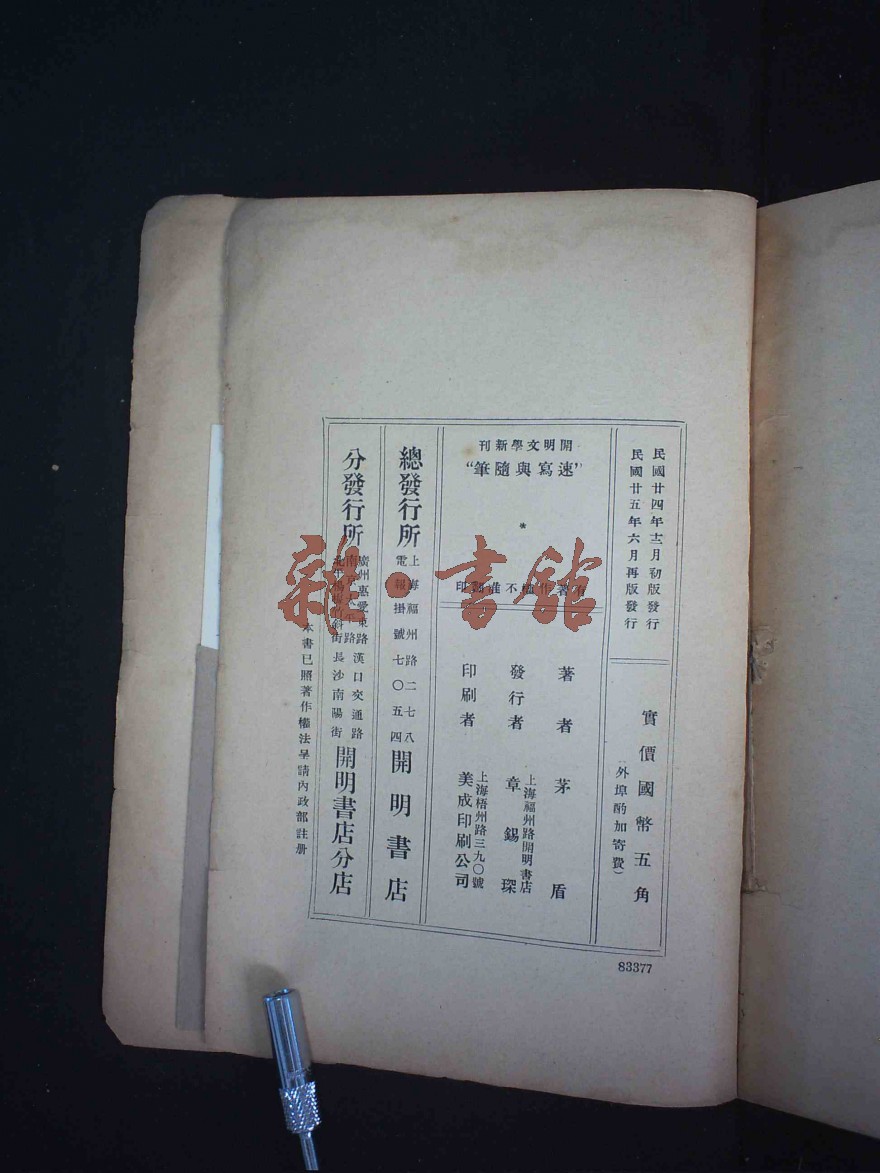 民國廿四年十二月初版發行
民國廿五年六月再版發行
實價國幣五角
(外埠酌加寄費)
開明文學新刊
“速寫與隨筆”
*
有著作權不准翻印
著者 茅盾
發行者 章錫琛
上海福州路開明書店
印刷者 美成印刷公司
上海梧州路三九〇號
總發行所
上海福州路二七八
電報掛號七〇五四
開明書店
分發行所
廣州惠愛東路 漢口交通路
南京太平路
北平楊梅竹斜街 長沙南陽街
開明書店分店
本書已照著作權法呈請內政部註册
83377
雜·書館